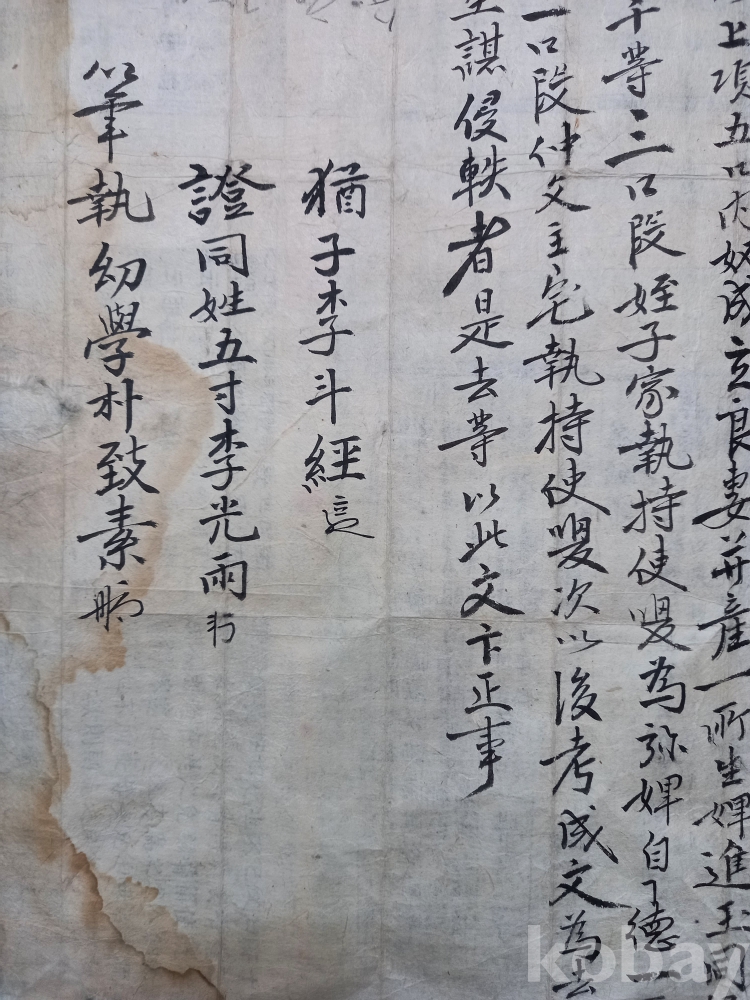 上項五口內奴成立良妻并産一所生婢進玉同
等三口段姪子家執持使喚為㫆婢自丁德一
一口段仲父主宅執持使喚次以後考成文為去
謀侵軼者是去等以此文卞正事
猶子李斗經
證同姓五寸李光雨
筆執幼學朴致素
kobay